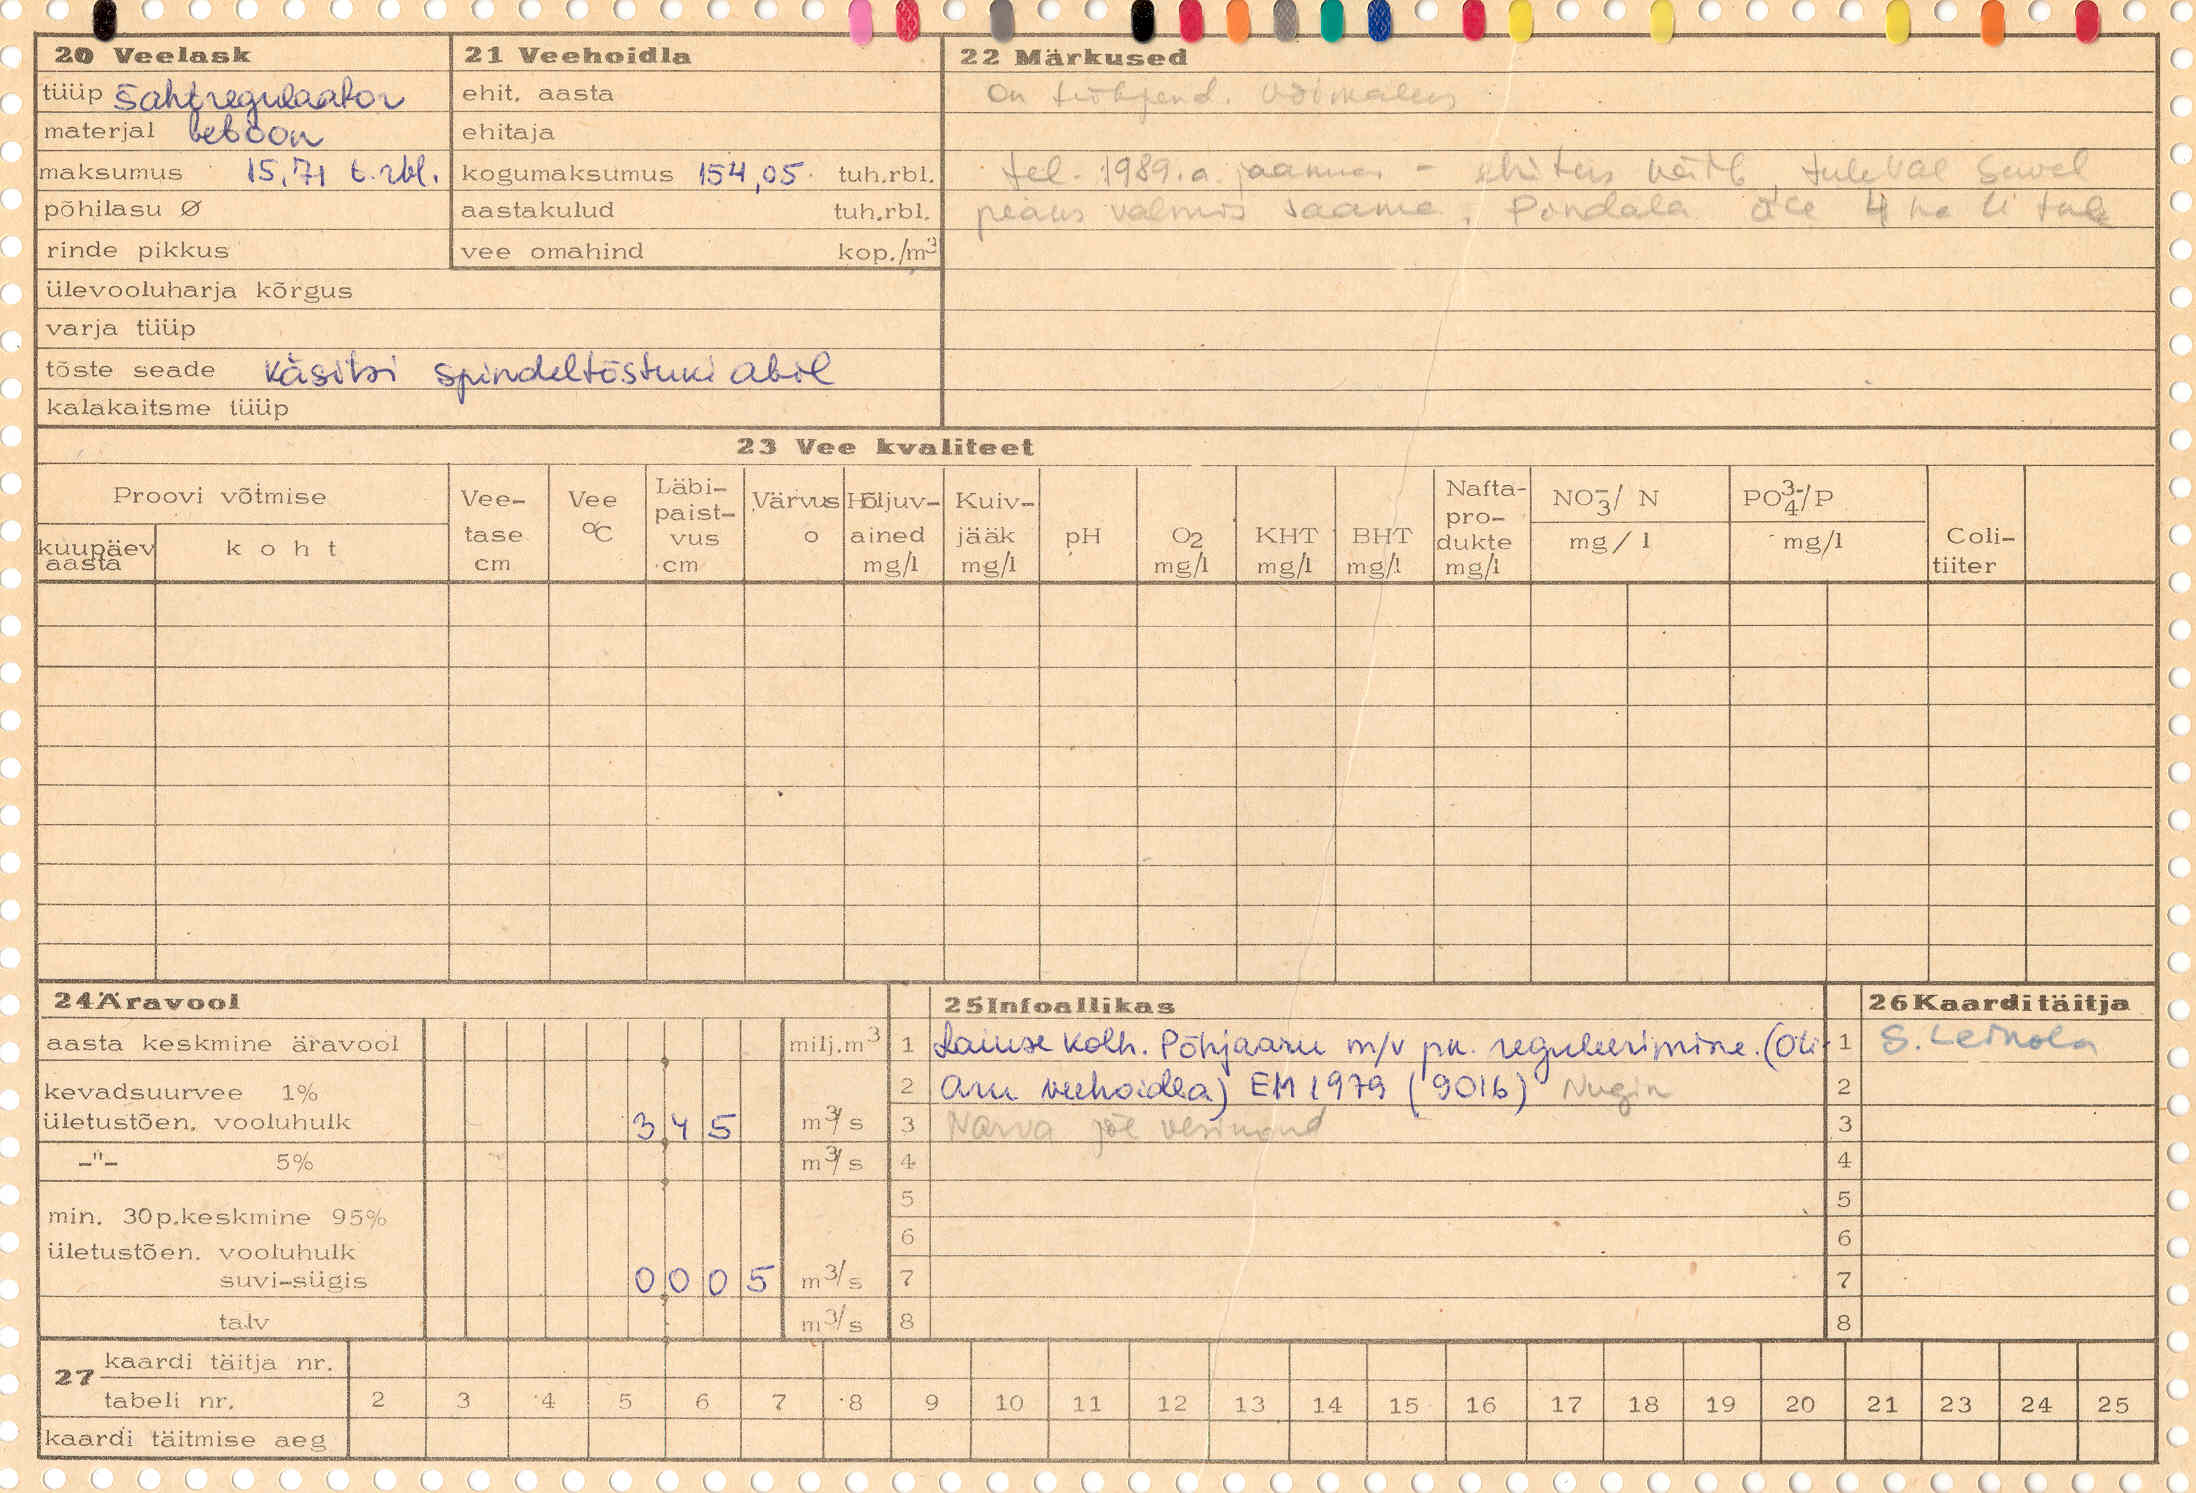 20 Veelask
tüüp šahtregulaator
materjal betoon
maksumus 15,71 t.rbl.
põhilasu Ø
rinde pikkus
ülevooluharja kõrgus
varja tüüp
tõste seade käsitsi spindeltõstuki abil
kalakaitsme tüüp
21 Veehoidla
ehit. aasta
ehitaja
kogumaksumus 154,05 tuh.rbl.
aastakulud tuh.rbl.
vee omahind kop./m³
22 Märkused
On
tel. 1989.a. jaanuar - ehitus käib, tuleval suvel
peaks valmis saama. Pindala üle 4 ha ei tule
23 Vee kvaliteet
Proovi võtmise
kuupäev aasta
koht
Vee-tase cm
Vee °C
Läbi-paist-vus cm
Värvus o
Hõljuv-ained mg/l
Kuiv-jääk mg/l
pH
O2 mg/l
KHT mg/l
BHT mg/l
Nafta-pro-dukte mg/l
NO3-/ N mg/l
PO4 3-/P mg/l
Coli-tiiter
24 Äravool
aasta keskmine äravool milj.m³
kevadsuurvee 1%
ületustõen. vooluhulk 3 4 5 m³/s
-"- 5% m³/s
min. 30p.keskmine 95%
ületustõen. vooluhulk
suvi-sügis 0 0 0 5 m³/s
talv m³/s
25 Infoallikas
1 Laiuse kolh. Põhjaaru m/v pk. reguleerimine. (Oti-
2 aru veehoidla) EM 1979 (9016) Nugin
3 Narva jõe vesikond
4
5
6
7
8
26 Kaardi täitja
1 S. Leinola
2
3
4
5
6
7
8
27 kaardi täitja nr.
tabeli nr. 2 3 4 5 6 7 8 9 10 11 12 13 14 15 16 17 18 19 20 21 23 24 25
kaardi täitmise aeg